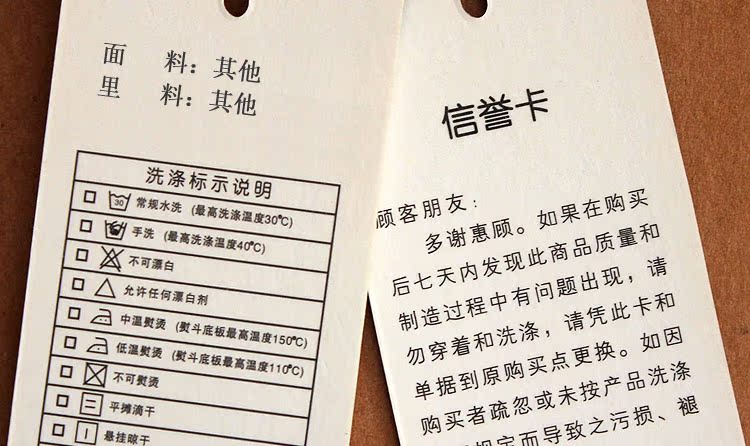 面 料：其他
里 料：其他
洗涤标示说明
30 常规水洗 (最高洗涤温度30℃)
手洗 (最高洗涤温度40℃)
不可漂白
允许任何漂白剂
中温熨烫 (熨斗底板最高温度150℃)
低温熨烫 (熨斗底板最高温度110℃)
不可熨烫
平摊滴干
悬挂晾干
信誉卡
顾客朋友：
多谢惠顾。如果在购买
后七天内发现此商品质量和
制造过程中有问题出现，请
勿穿着和洗涤，请凭此卡和
单据到原购买点更换。如因
购买者疏忽或未按产品洗涤
规定而导致之污损、褪